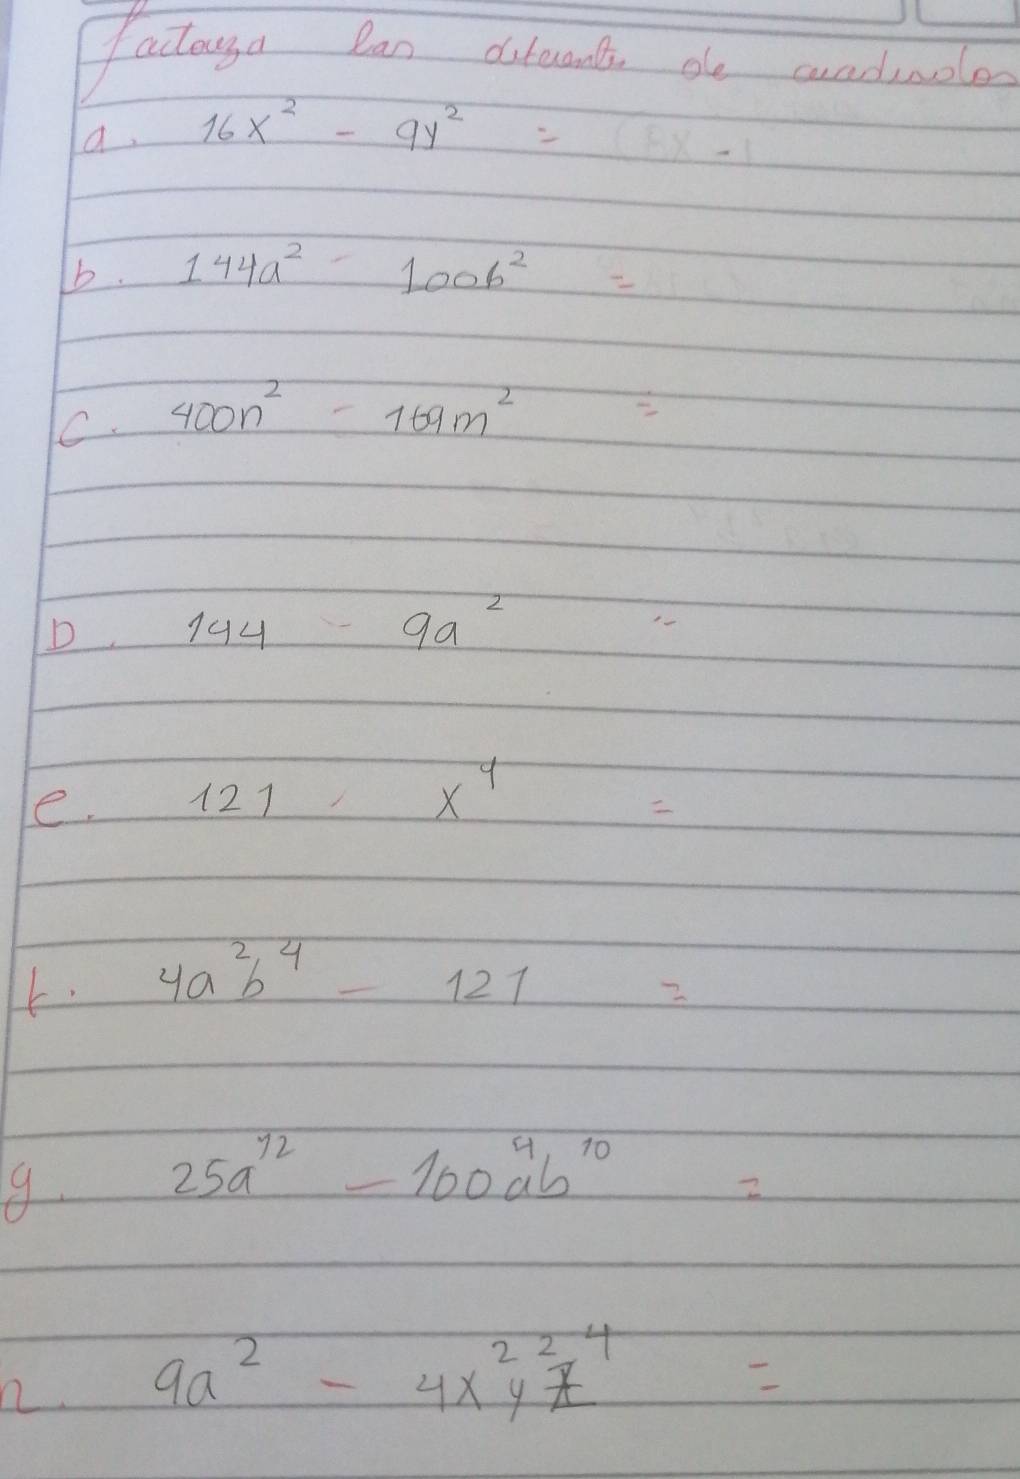 factoriza las diferentes de cuadrados
a. 16x² - 9y² =
b. 144a² - 100b² =
c. 400n² - 169m² =
D. 144 - 9a² =
e. 121 - x⁴ =
f. 4a²b⁴ - 121 =
g. 25a¹² - 100a⁴b¹⁰ =
h. 9a² - 4x²y²z⁴ =